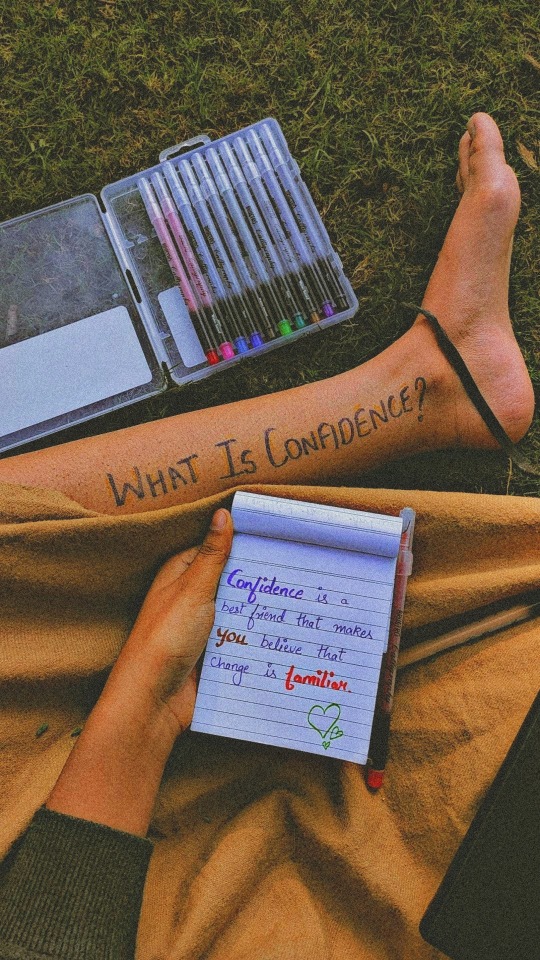 WHAT IS CONFIDENCE?
Confidence is a
best friend that makes
you believe that
change is familiar.